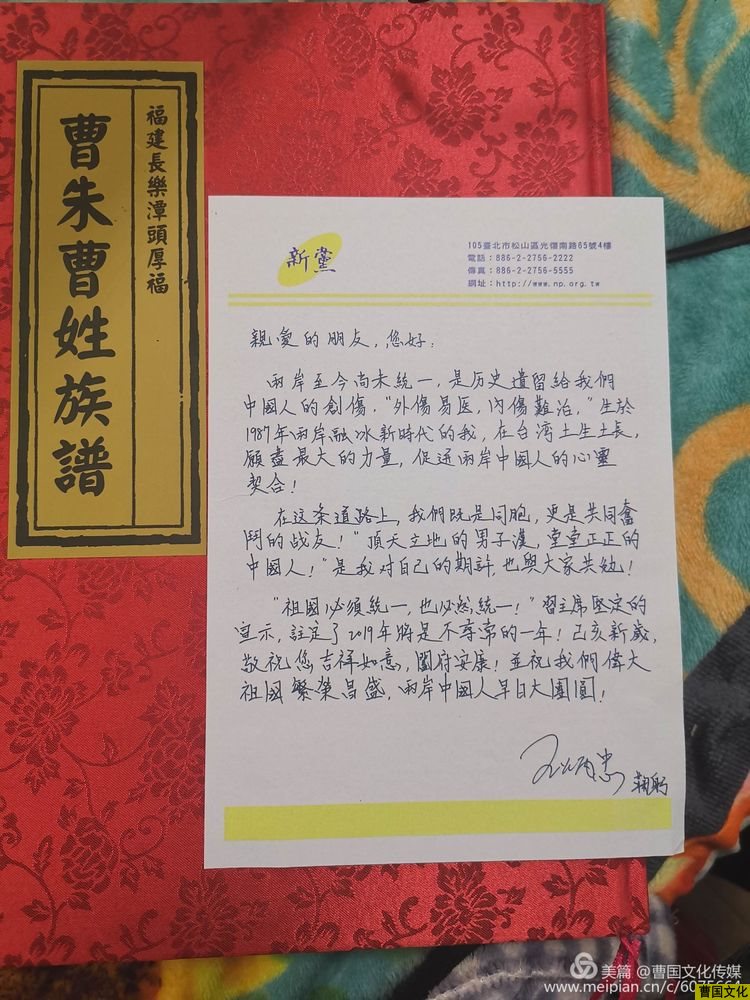 福建長樂潭頭厚福
曹朱曹姓族譜
新黨
105臺北市松山區光復南路65號4樓
電話：886-2-2756-2222
傳真：886-2-2756-5555
網址：http://www.np.org.tw
親愛的朋友，您好：
兩岸至今尚未統一，是历史遺留給我們
中國人的創傷，“外傷易医，内傷難治，”生於
1987年兩岸融冰新時代的我，在台湾土生土長，
願盡最大的力量，促進兩岸中國人的心靈
契合！
在这条道路上，我們既是同胞，更是共同奮
鬥的战友！“頂天立地的男子漢，堂堂正正的
中國人！”是我对自己的期許，也與大家共勉！
“祖國必須統一，也必然統一！”習主席堅定的
宣示，註定了2019年將是不尋常的一年！己亥新歲，
敬祝您吉祥如意，闔府安康！並祝我們偉大
祖國繁榮昌盛，兩岸中國人早日大團圓！
王炳忠 鞠躬
美篇 @曹国文化传媒
www.meipian.cn/c/6075
曹国文化